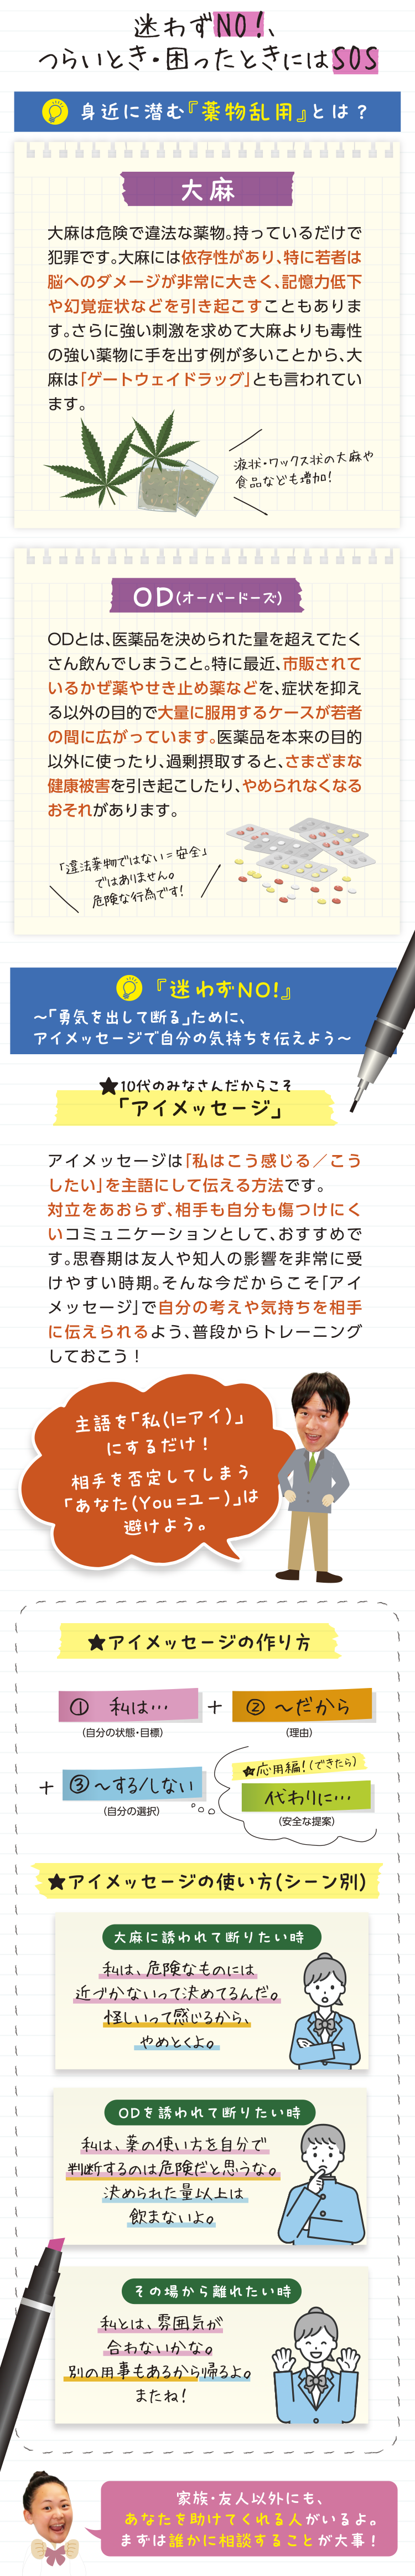 迷わずNO!、
つらいとき・困ったときにはSOS
身近に潜む『薬物乱用』とは？
大麻
大麻は危険で違法な薬物。持っているだけで
犯罪です。大麻には依存性があり、特に若者は
脳へのダメージが非常に大きく、記憶力低下
や幻覚症状などを引き起こすこともありま
す。さらに強い刺激を求めて大麻よりも毒性
の強い薬物に手を出す例が多いことから、大
麻は「ゲートウェイドラッグ」とも言われてい
ます。
液状・ワックス状の大麻や
食品なども増加!
OD(オーバードーズ)
ODとは、医薬品を決められた量を超えてたく
さん飲んでしまうこと。特に最近、市販されて
いるかぜ薬やせき止め薬などを、症状を抑え
る以外の目的で大量に服用するケースが若者
の間に広がっています。医薬品を本来の目的
以外に使ったり、過剰摂取すると、さまざまな
健康被害を引き起こしたり、やめられなくなる
おそれがあります。
「違法薬物ではない＝安全」
ではありません。
危険な行為です!
『迷わずNO!』
〜「勇気を出して断る」ために、
アイメッセージで自分の気持ちを伝えよう〜
★10代のみなさんだからこそ
「アイメッセージ」
アイメッセージは「私はこう感じる／こう
したい」を主語にして伝える方法です。
対立をあおらず、相手も自分も傷つけにく
いコミュニケーションとして、おすすめで
す。思春期は友人や知人の影響を非常に受
けやすい時期。そんな今だからこそ「アイ
メッセージ」で自分の考えや気持ちを相手
に伝えられるよう、普段からトレーニング
しておこう！
主語を「私(I=アイ)」
にするだけ！
相手を否定してしまう
「あなた(You=ユー)」は
避けよう。
★アイメッセージの作り方
① 私は… + ② 〜だから
(自分の状態・目標) (理由)
+ ③〜する/しない
(自分の選択)
★応用編!(できたら)
代わりに…
(安全な提案)
★アイメッセージの使い方(シーン別)
大麻に誘われて断りたい時
私は、危険なものには
近づかないって決めてるんだ。
怪しいって感じるから、
やめとくよ。
ODを誘われて断りたい時
私は、薬の使い方を自分で
判断するのは危険だと思うな。
決められた量以上は
飲まないよ。
その場から離れたい時
私とは、雰囲気が
合わないかな。
別の用事もあるから帰るよ。
またね！
家族・友人以外にも、
あなたを助けてくれる人がいるよ。
まずは誰かに相談することが大事！